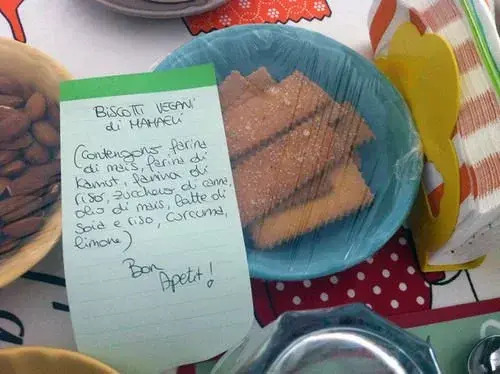 BISCOTTI VEGANI
di MAMAELI
(Contengono farina
di mais, farina di
kamut, farina di
riso, zucchero di canna,
olio di mais, latte di
soia e riso, curcuma,
limone)
Bon
Apetit!